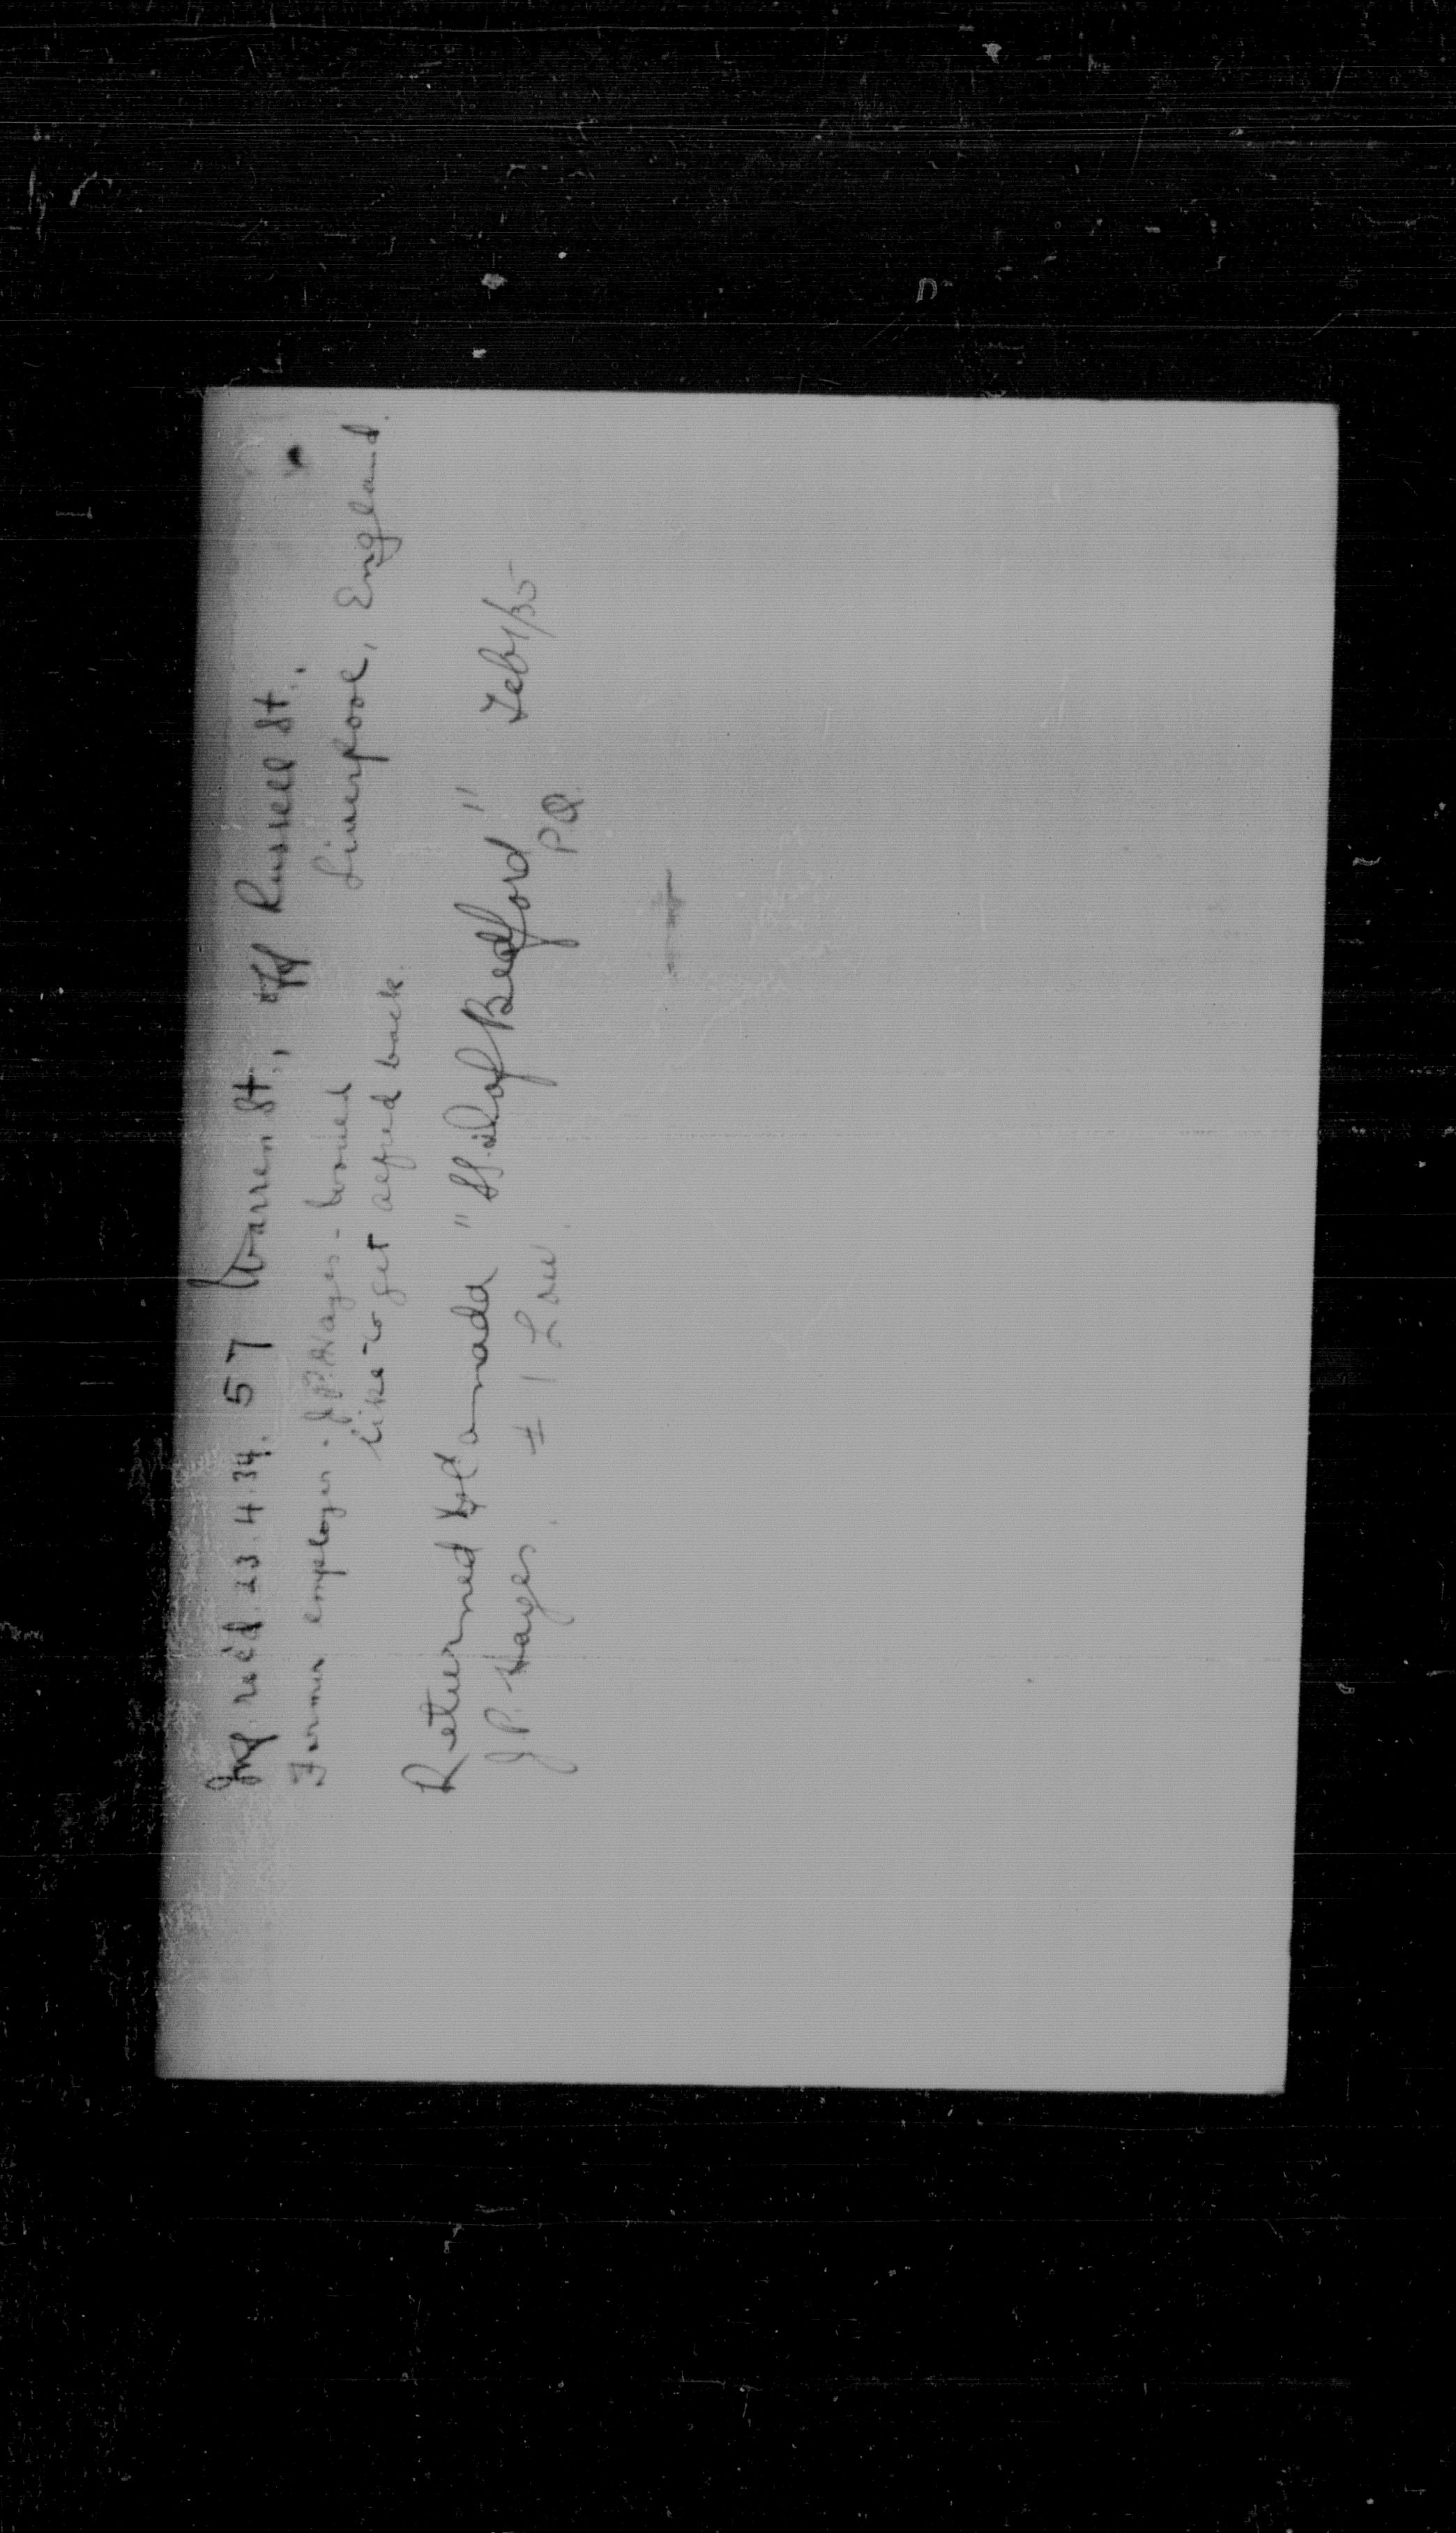 Inf. rec'd. 23.4.34. 57 Warren St., off Russell St.,
Liverpool, England.
Former employer. J.P. Hayes - would
like to get alfred back.
Returned to Canada "SS. D. of Bedford" Feb 1/35
J.P. Hayes. #1 Low. PQ.